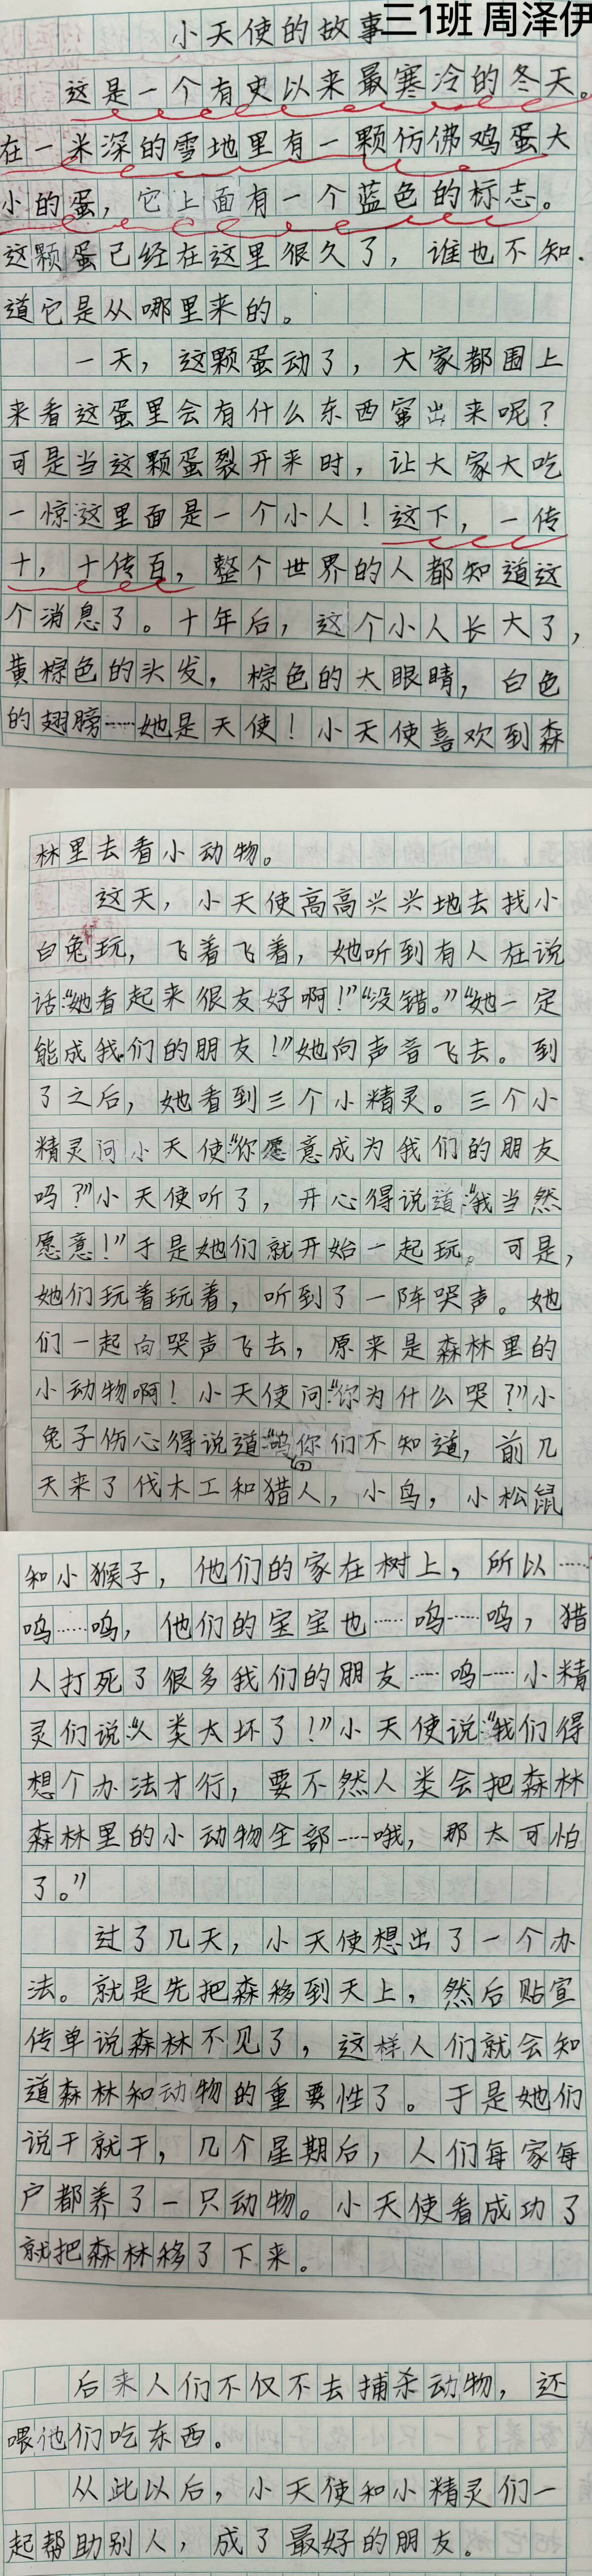 小天使的故事
三1班 周泽伊
这是一个有史以来最寒冷的冬天。
在一米深的雪地里有一颗仿佛鸡蛋大
小的蛋，它上面有一个蓝色的标志。
这颗蛋已经在这里很久了，谁也不知
道它是从哪里来的。
一天，这颗蛋动了，大家都围上
来看这蛋里会有什么东西窜出来呢？
可是当这颗蛋裂开来时，让大家大吃
一惊：这里面是一个小人！这下，一传
十，十传百，整个世界的人都知道这
个消息了。十年后，这个小人长大了，
黄棕色的头发，棕色的大眼睛，白色
的翅膀……她是天使！小天使喜欢到森
林里去看小动物。
这天，小天使高高兴兴地去找小
白兔玩，飞着飞着，她听到有人在说
话：“她看起来很友好啊！”“没错。”“她一定
能成我们的朋友！”她向声音飞去。到
了之后，她看到三个小精灵。三个小
精灵问小天使：“你愿意成为我们的朋友
吗？”小天使听了，开心得说道：“我当然
愿意！”于是她们就开始一起玩。可是，
她们玩着玩着，听到了一阵哭声。她
们一起向哭声飞去，原来是森林里的
小动物啊！小天使问：“你为什么哭？”小
兔子伤心得说道：“呜，你们不知道，前几
天来了伐木工和猎人，小鸟，小松鼠
和小猴子，他们的家在树上，所以……
呜……呜，他们的宝宝也……呜……呜，猎
人打死了很多我们的朋友……呜……小精
灵们说：“人类太坏了！”小天使说：“我们得
想个办法才行，要不然人类会把森林
森林里的小动物全部……哦，那太可怕
了。”
过了几天，小天使想出了一个办
法。就是先把森移到天上，然后贴宣
传单说森林不见了，这样人们就会知
道森林和动物的重要性了。于是她们
说干就干，几个星期后，人们每家每
户都养了一只动物。小天使看成功了
就把森林移了下来。
后来人们不仅不去捕杀动物，还
喂他们吃东西。
从此以后，小天使和小精灵们一
起帮助别人，成了最好的朋友。